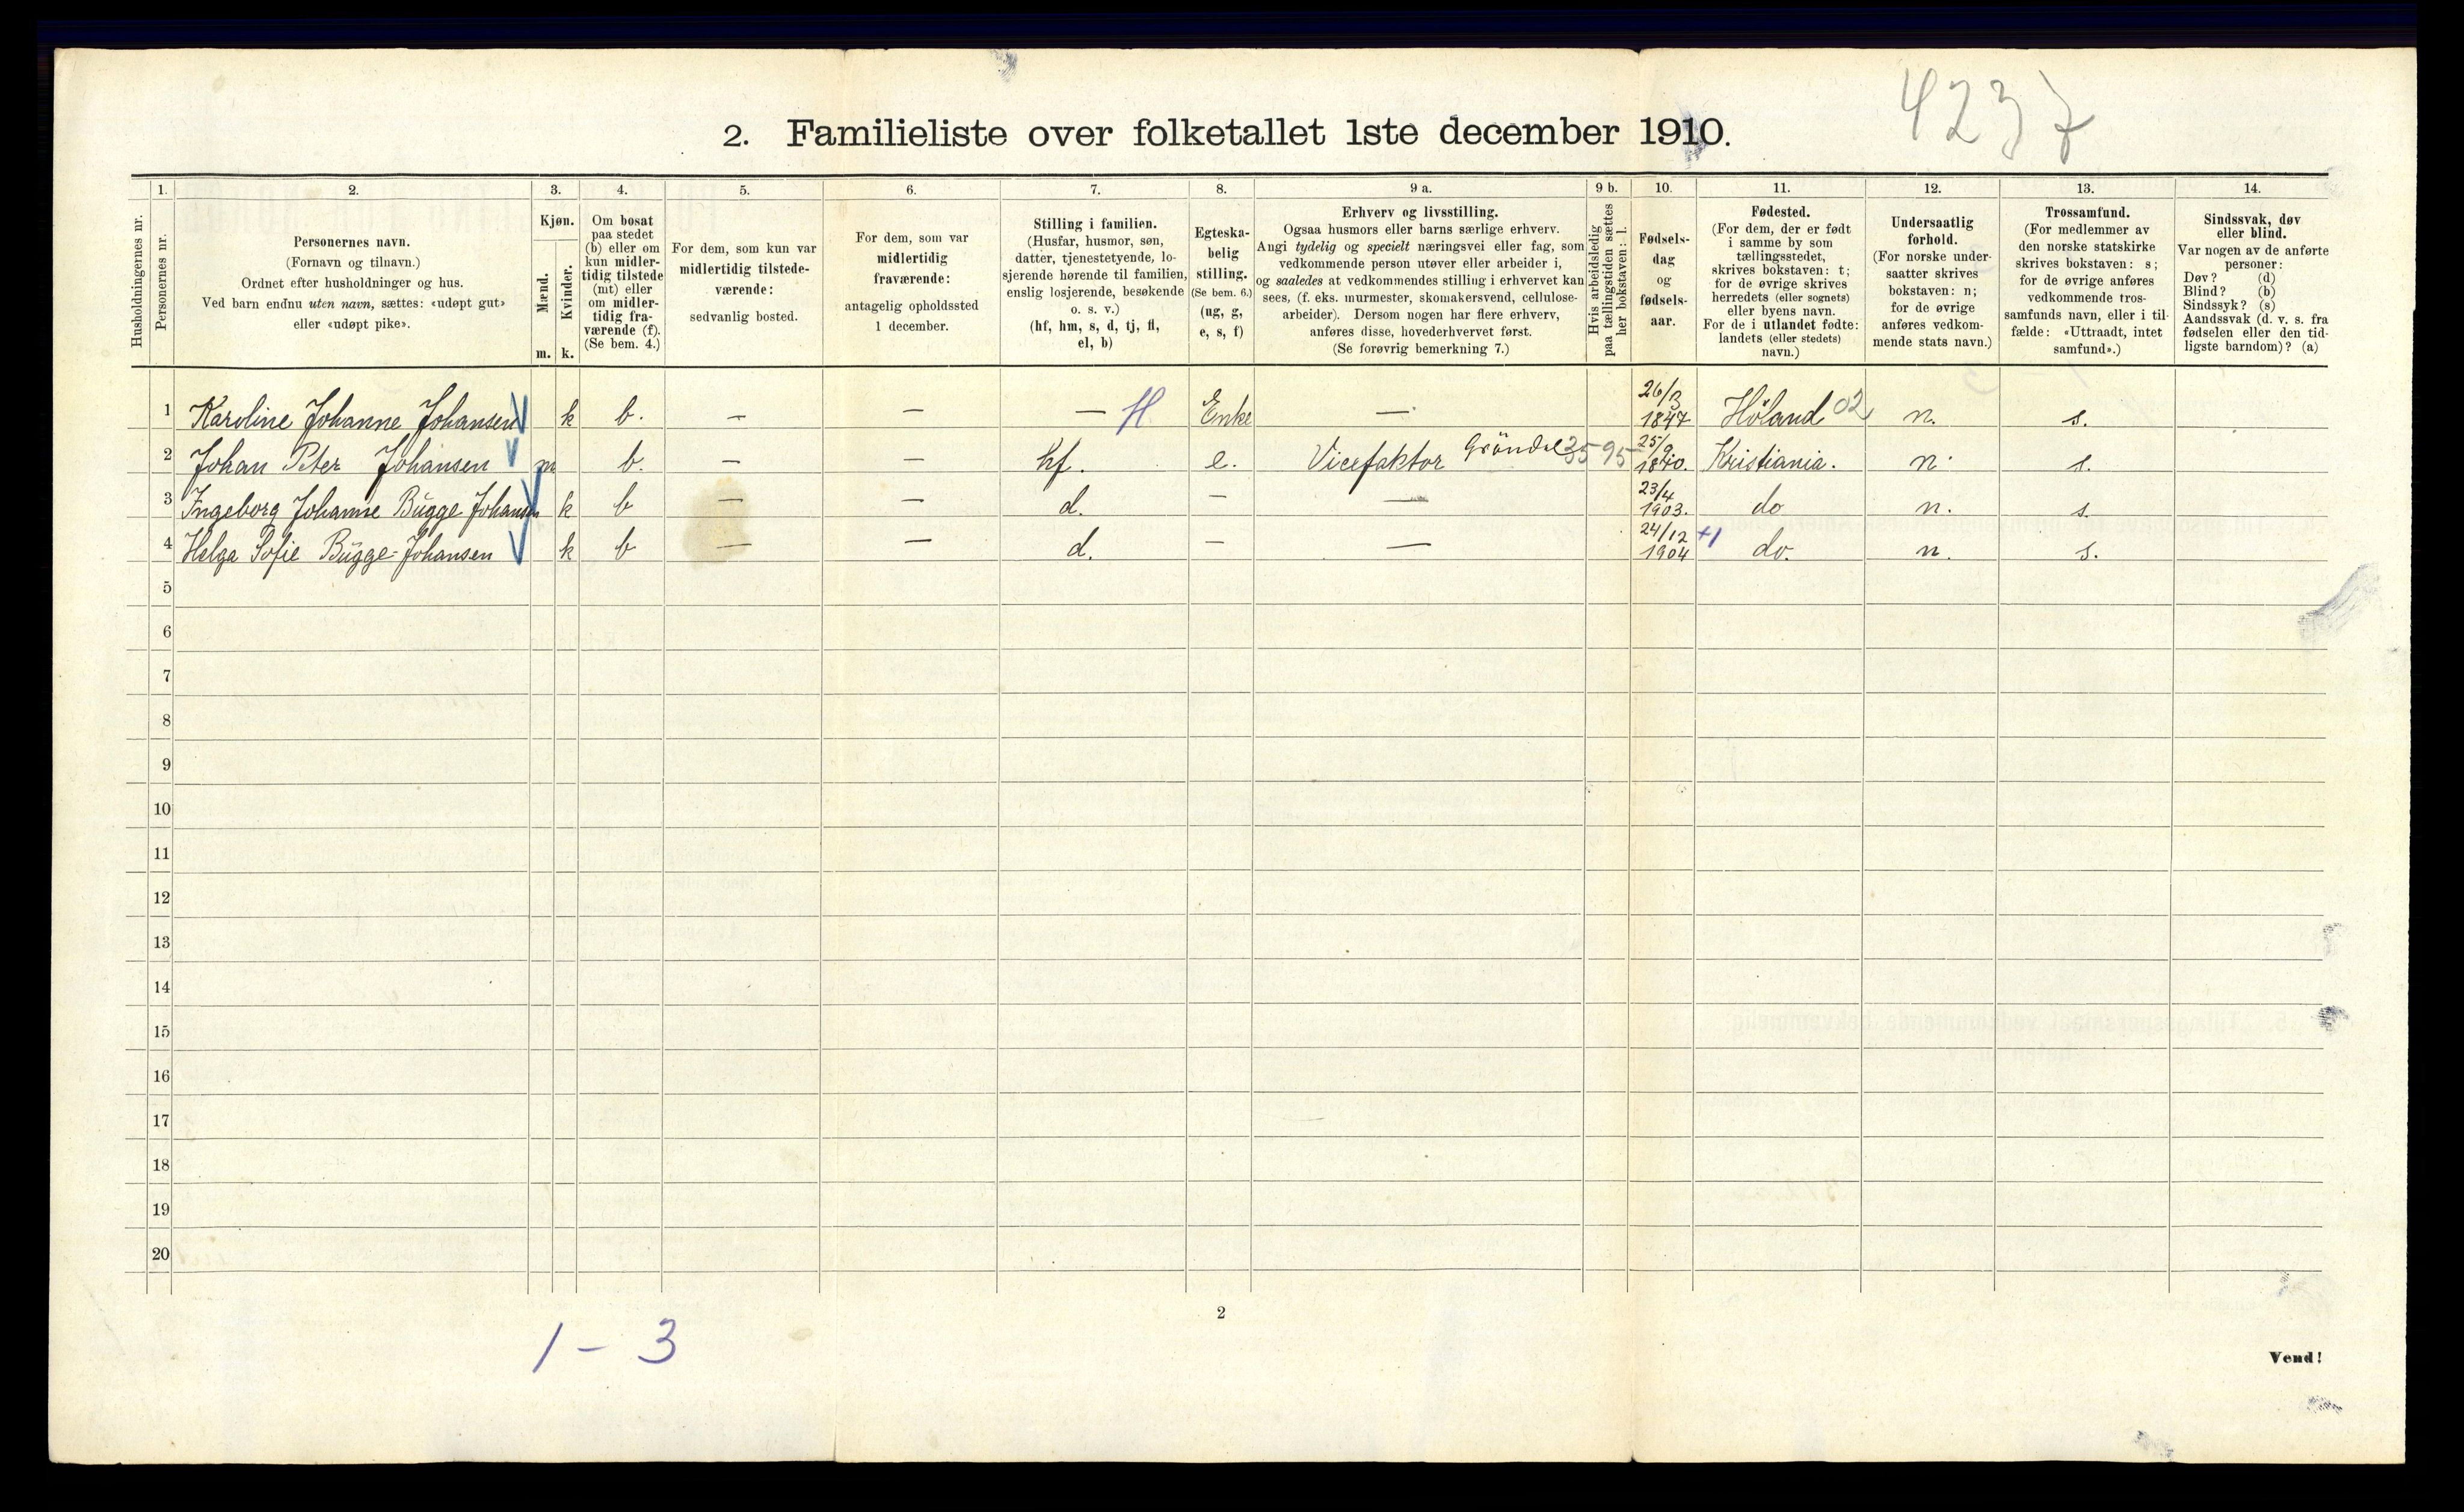 4237
2. Familieliste over folketallet 1ste december 1910.
Husholdningernes nr.
1. Personernes nr.
2. Personernes navn.
(Fornavn og tilnavn.)
Ordnet efter husholdninger og hus.
Ved barn endnu uten navn, sættes: «udøpt gut»
eller «udøpt pike».
3. Kjøn.
Mænd. m.
Kvinder. k.
4. Om bosat
paa stedet
(b) eller om
kun midler-
tidig tilstede
(mt) eller
om midler-
tidig fra-
værende (f).
(Se bem. 4.)
5. For dem, som kun var
midlertidig tilstede-
værende:
sedvanlig bosted.
6. For dem, som var
midlertidig
fraværende:
antagelig opholdssted
1 december.
7. Stilling i familien.
(Husfar, husmor, søn,
datter, tjenestetyende, lo-
sjerende hørende til familien,
enslig losjerende, besøkende
o. s. v.)
(hf, hm, s, d, tj, fl,
el, b)
8. Egteska-
belig
stilling.
(Se bem. 6.)
(ug, g,
e, s, f)
9 a. Erhverv og livsstilling.
Ogsaa husmors eller barns særlige erhverv.
Angi tydelig og specielt næringsvei eller fag, som
vedkommende person utøver eller arbeider i,
og saaledes at vedkommendes stilling i erhvervet kan
sees, (f. eks. murmester, skomakersvend, cellulose-
arbeider). Dersom nogen har flere erhverv,
anføres disse, hovederhvervet først.
(Se forøvrig bemerkning 7.)
9 b. Hvis arbeidsledig
paa tællingstiden sættes
her bokstaven: l.
10. Fødsels-
dag
og
fødsels-
aar.
11. Fødested.
(For dem, der er født
i samme by som
tællingsstedet,
skrives bokstaven: t;
for de øvrige skrives
herredets (eller sognets)
eller byens navn.
For de i utlandet fødte:
landets (eller stedets)
navn.)
12. Undersaatlig
forhold.
(For norske under-
saatter skrives
bokstaven: n;
for de øvrige
anføres vedkom-
mende stats navn.)
13. Trossamfund.
(For medlemmer av
den norske statskirke
skrives bokstaven: s;
for de øvrige anføres
vedkommende tros-
samfunds navn, eller i til-
fælde: «Uttraadt, intet
samfund».)
14. Sindssvak, døv
eller blind.
Var nogen av de anførte
personer:
Døv? (d)
Blind? (b)
Sindssyk? (s)
Aandssvak (d. v. s. fra
fødselen eller den tid-
ligste barndom)? (a)
1 Karoline Johanne Johansen k b. — — — H e Enke — 26/3 1847 Høland 02 n. s.
2 Johan Peter Johansen m b. — — hf. e. Vicefaktor Gröndal 35-95 25/9 1870. Kristiania. n. s.
3 Ingeborg Johanne Bugge Johansen k b — — d. — — 23/4 1903. do n. s.
4 Helga Sofie Bugge-Johansen k b — — d. — — 24/12 1904 +1 do. n. s.
5
6
7
8
9
10
11
12
13
14
15
16
17
18
19
20
2
1 - 3
Vend!